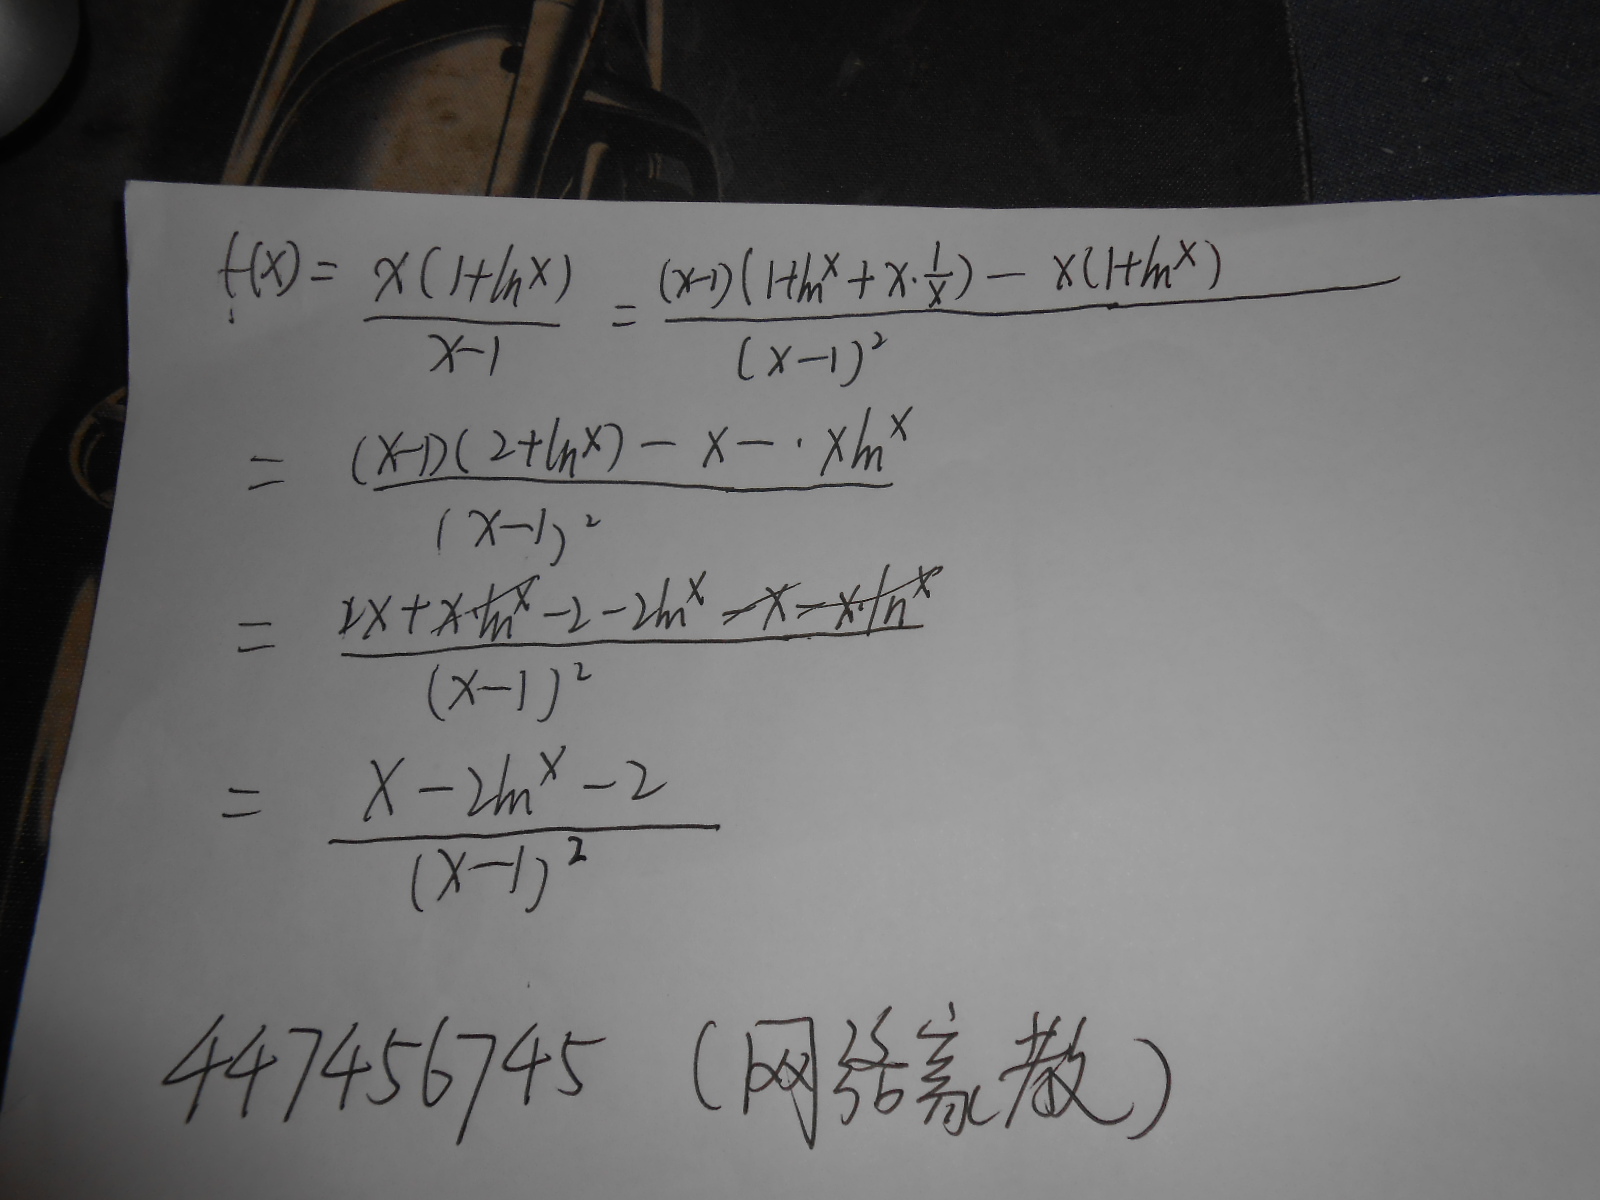 f(x) = x(1+ln^x) / x-1 = (x-1)(1+ln^x + x·1/x) - x(1+ln^x) / (x-1)²
= (x-1)(2+ln^x) - x - · x ln^x / (x-1)²
= 2x + x·ln^x - 2 - 2ln^x - x - x·ln^x / (x-1)²
= x - 2ln^x - 2 / (x-1)²
447456745 (网络家教)